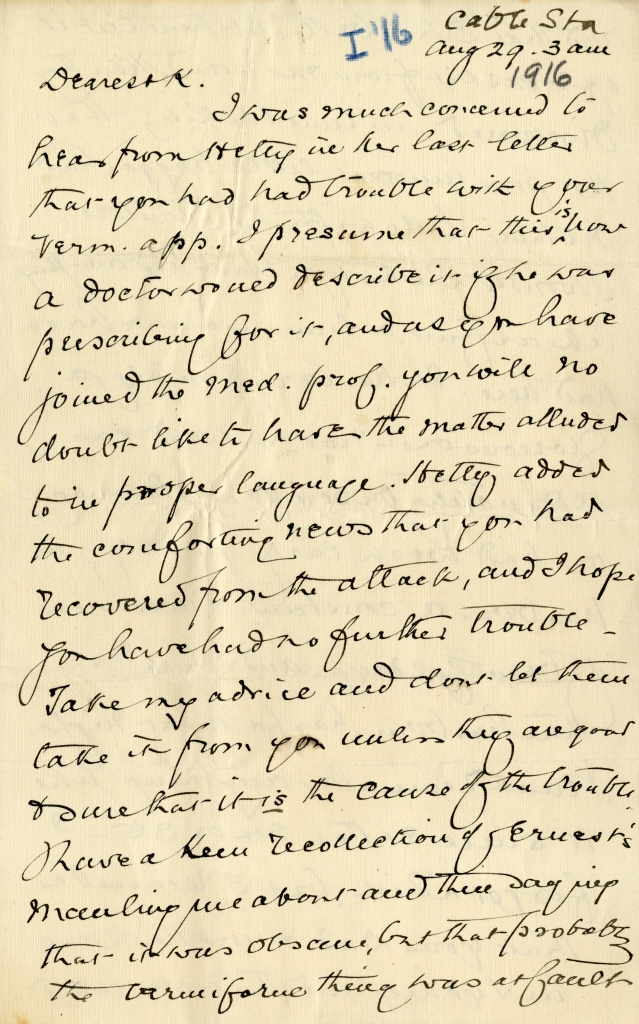 I '16
Cable Sta
Aug 29. 3 am
1916
Dearest K.
I was much concerned to
hear from Hetty in her last letter
that you had had trouble with your
verm. app. I presume that this is how
a doctor would describe it if he was
prescribing for it, and as you have
joined the med. prof. you will no
doubt like to have the matter alluded
to in proper language. Hetty added
the comforting news that you had
recovered from the attack, and I hope
you have had no further trouble -
Take my advice and dont let them
take it from you unless they are quite
sure that it is the cause of the trouble.
I have a keen recollection of Ernest's
mauling me about and then saying
that it was obscure, but that probably
the vermiforme thing was at fault